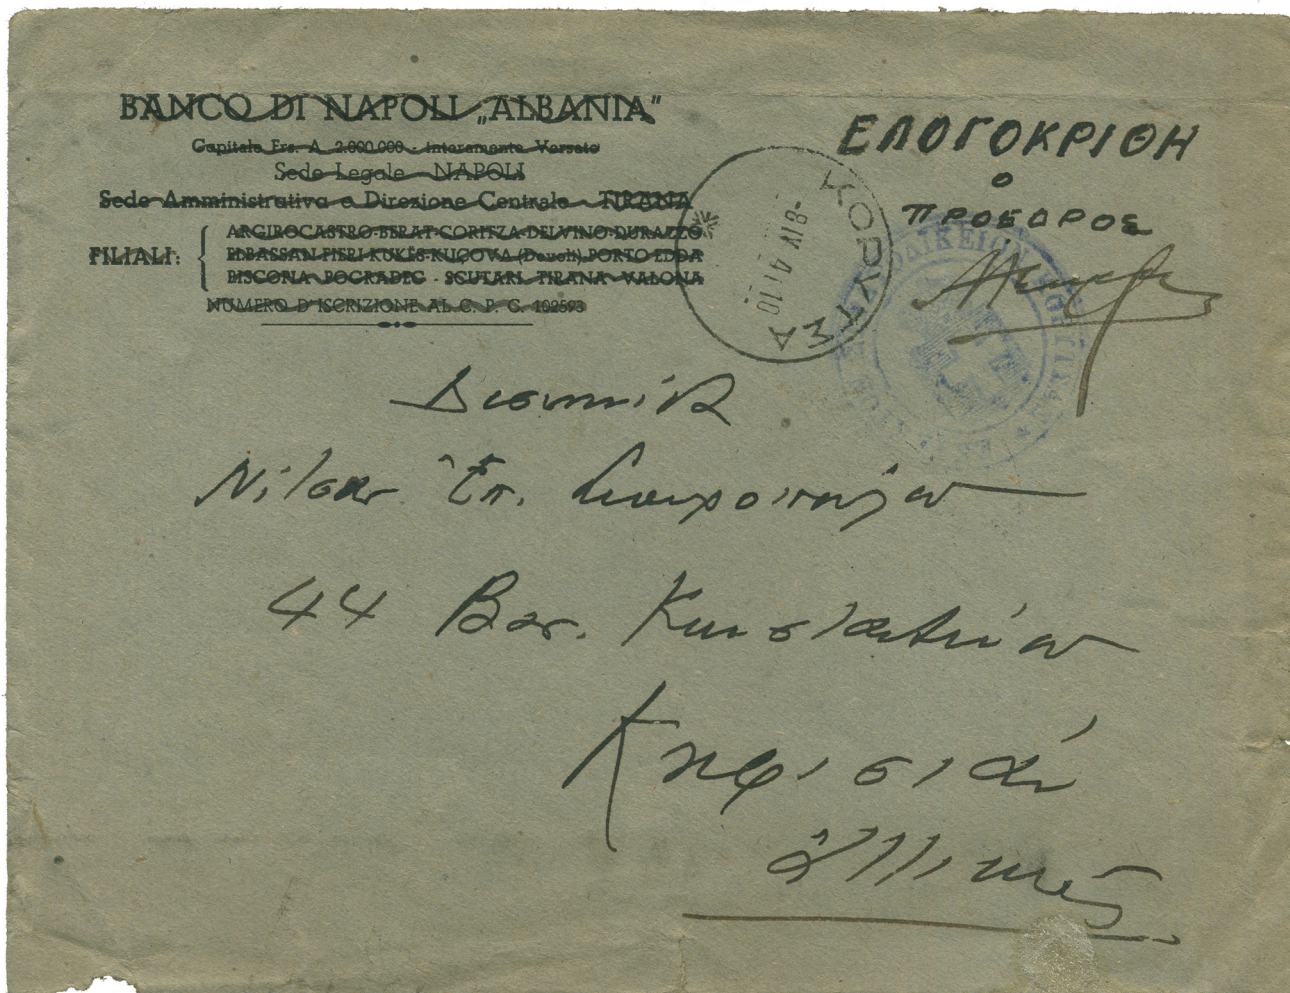 BANCO DI NAPOLI „ALBANIA"
Capitale Frs. A. 2.000.000 - interamente Versato
Sede Legale NAPOLI
Sede Amministrativa e Direzione Centrale TIRANA
FILIALI:
ARGIROCASTRO-BERAT-CORITZA-DELVINO-DURAZZO
ELBASSAN-FIERI-KUKËS-KUÇOVA (Devoli)-PORTO EDDA
BISCORIA-POGRADEC - SCUTARI-TIRANA-VALONA
NUMERO D'ISCRIZIONE AL C. P. C. 102593
ΕΛΟΓΟΚΡΙΘΗ
Ο
ΠΡΟΕΔΡΟΣ
ΚΟΡΥΤΣΑ
-8 IV 41 10
Δεσποινίδα
Νίτσαν Ἐπ. Σταυροπούλου
44 Βασ. Κωνσταντίνου
Κηφισιάν
Ἀττικῆς